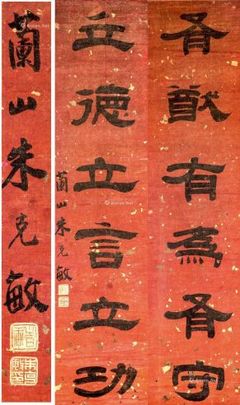 有猷有為有守
立德立言立功
蘭山朱克敏
蘭山朱克敏